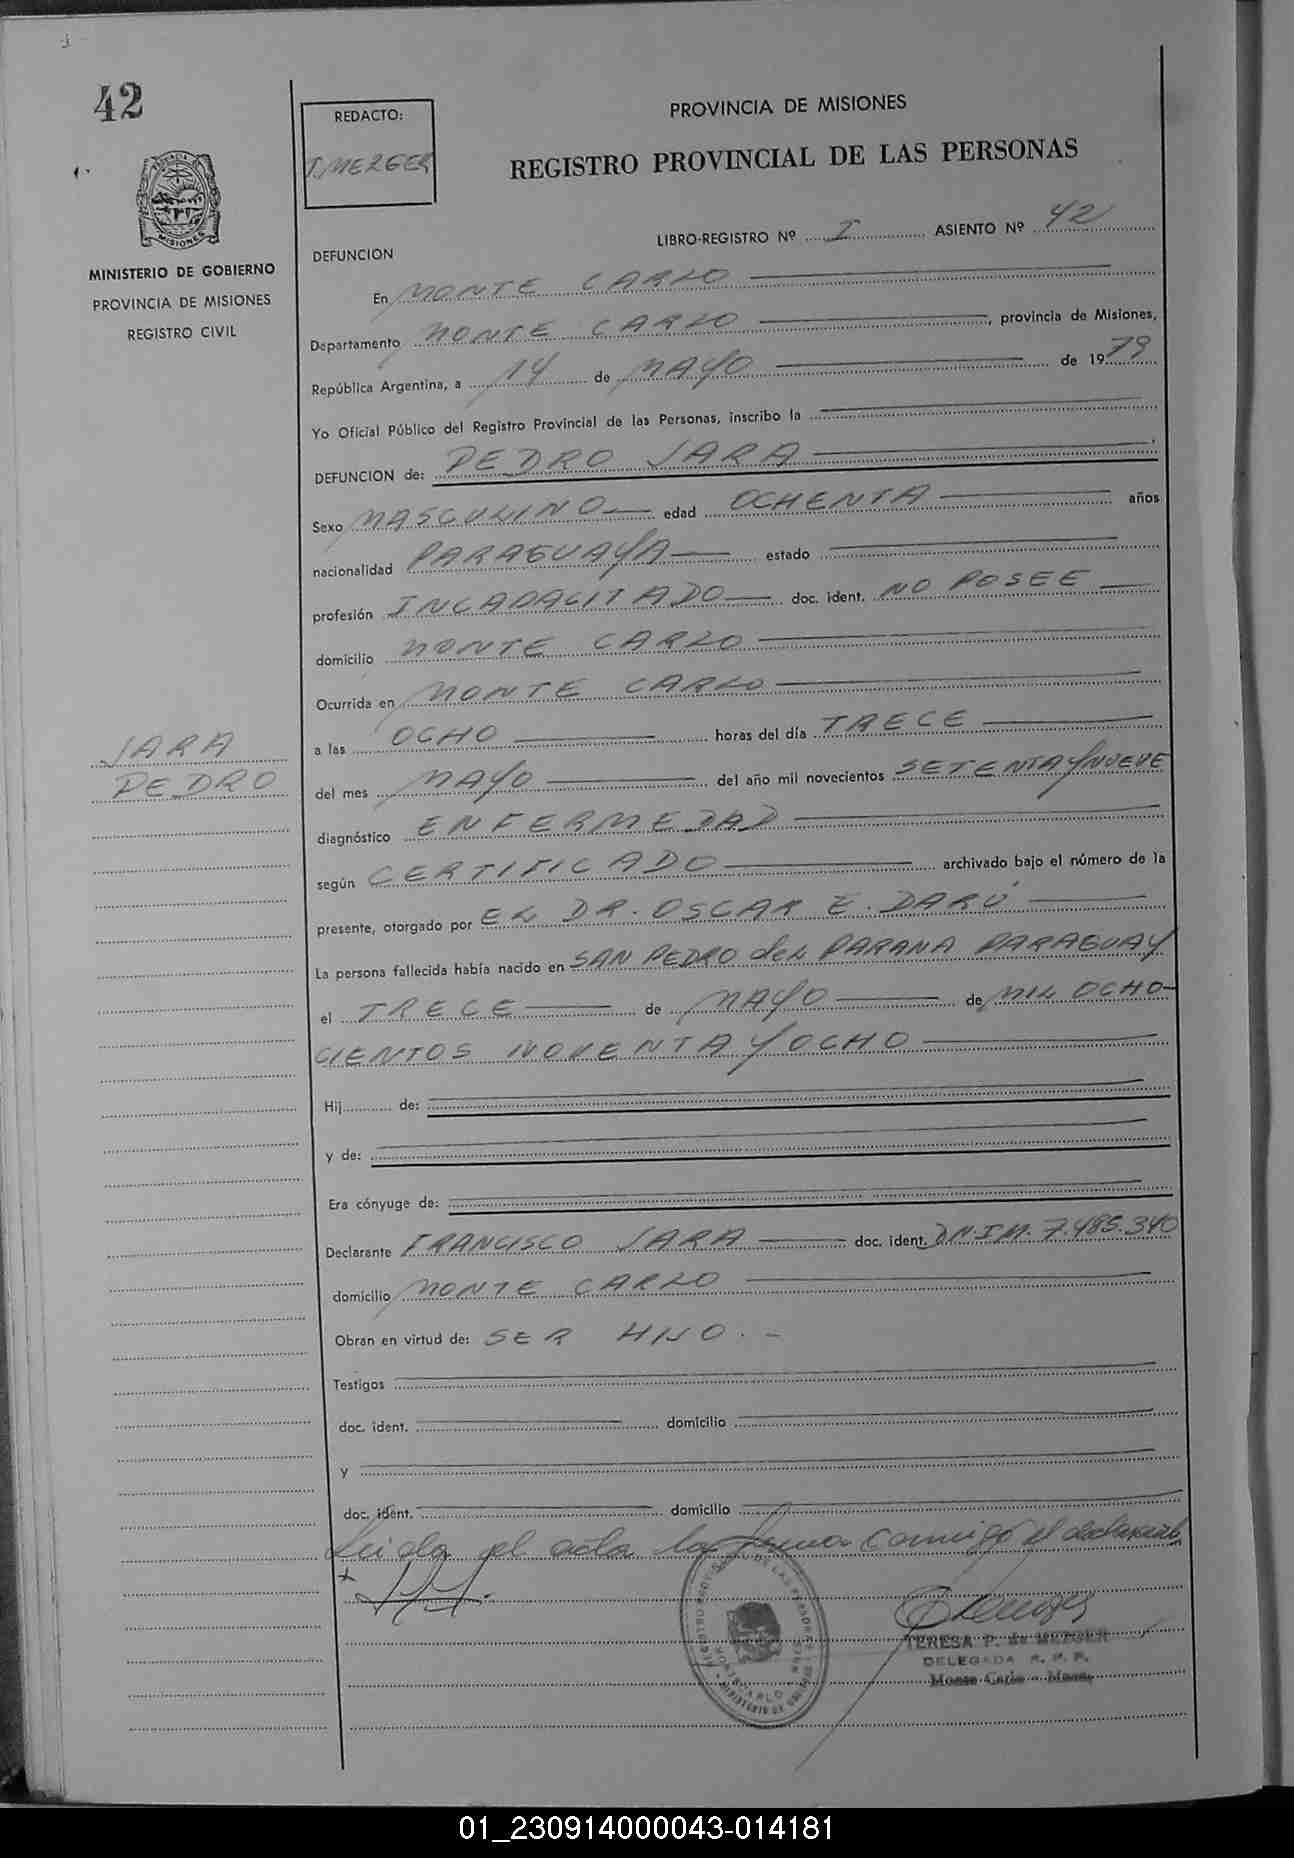 42
REDACTO:
T. MEZGER
PROVINCIA DE MISIONES
REGISTRO PROVINCIAL DE LAS PERSONAS
MISIONES
MINISTERIO DE GOBIERNO
PROVINCIA DE MISIONES
REGISTRO CIVIL
LIBRO-REGISTRO Nº I ASIENTO Nº 42
DEFUNCION
En MONTE CARLO
Departamento MONTE CARLO, provincia de Misiones,
República Argentina, a 14 de MAYO de 1979
Yo Oficial Público del Registro Provincial de las Personas, inscribo la
DEFUNCION de: PEDRO JARA
Sexo MASCULINO edad OCHENTA años
nacionalidad PARAGUAYA estado
profesión INCAPACITADO doc. ident. NO POSEE
domicilio MONTE CARLO
Ocurrida en MONTE CARLO
a las OCHO horas del día TRECE
JARA
PEDRO
del mes MAYO del año mil novecientos SETENTA Y NUEVE
diagnóstico ENFERMEDAD
según CERTIFICADO archivado bajo el número de la
presente, otorgado por EL DR. OSCAR E. DARÚ
La persona fallecida había nacido en SAN PEDRO deL PARANA PARAGUAY
el TRECE de MAYO de MIL OCHO-
CIENTOS NOVENTA Y OCHO
Hij de:
y de:
Era cónyuge de:
Declarante FRANCISCO JARA doc. ident. D.N.I.M. 7.485.340
domicilio MONTE CARLO
Obran en virtud de: SER HIJO. -
Testigos
doc. ident. domicilio
y
doc. ident. domicilio
Leida el acta la firma conmigo el declarante
TERESA P. de MEZGER
DELEGADA R. P. P.
Monte Carlo - Mnes.
01_230914000043-014181